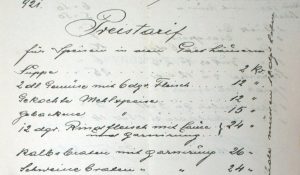 921.
Preistarif
für Speisen in den Gasthäusern
Suppe 2 Kr.
2 dl Gemüse mit 6 dgr. Fleisch 12 "
Gekochte Mehlspeise 12 "
Gebackene " 15 "
12 dgr. Rindfleisch mit Sauce und Garnierung 24 "
Kalbsbraten mit Garnirung 26 "
Schweine Braten " 24 "